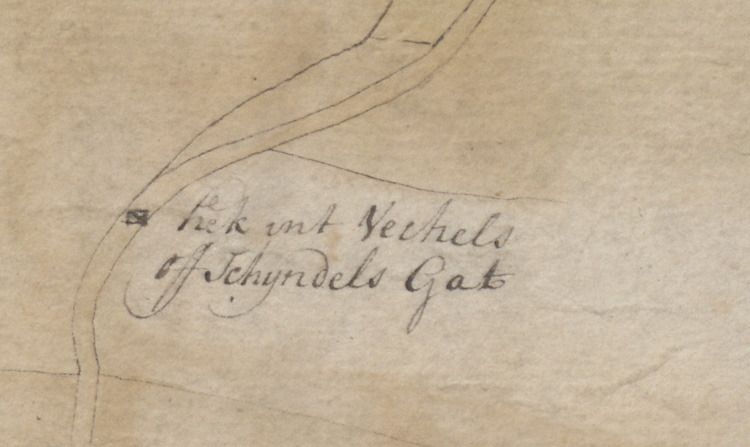 hek int Vechels
off Schyndels Gat